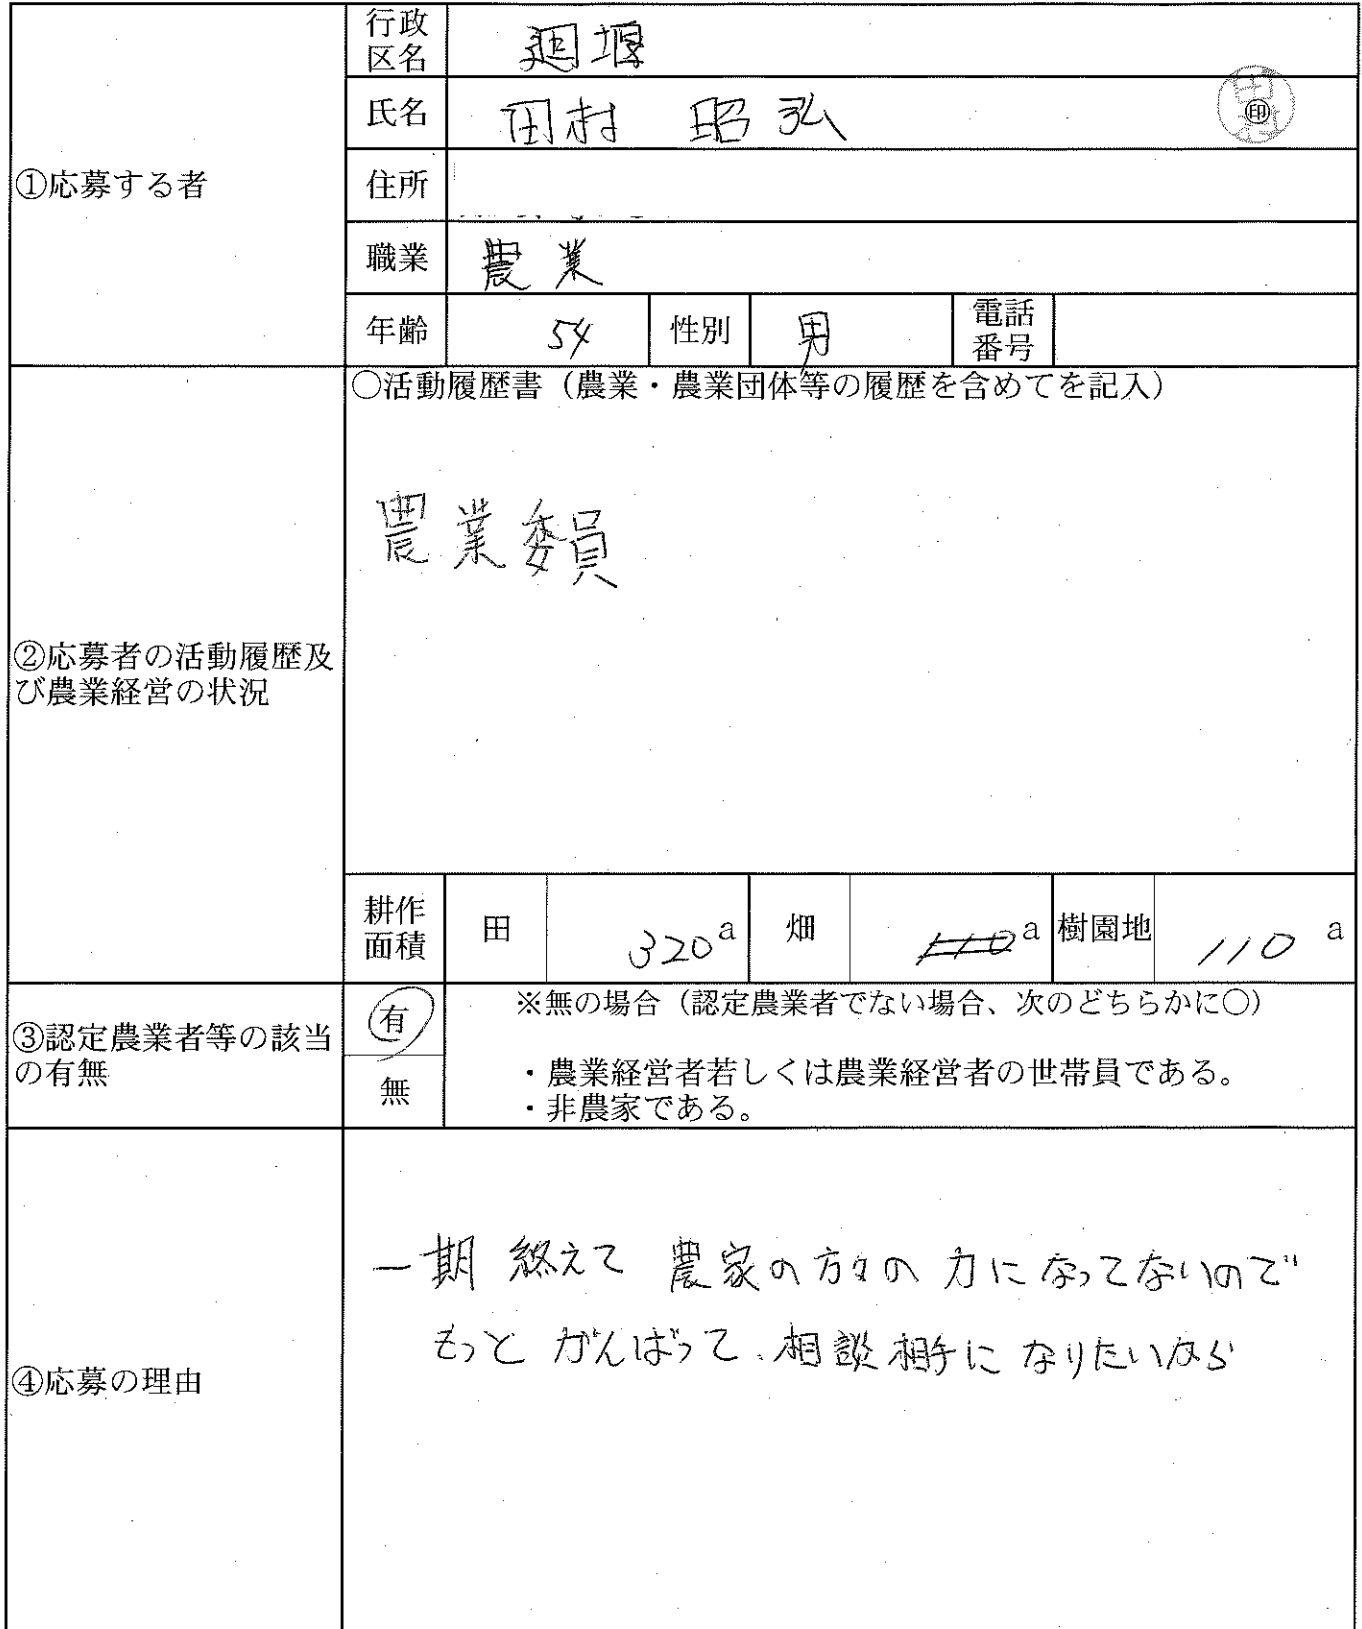 ①応募する者
行政区名 廻堰
氏名 田村 昭弘 ㊞
住所
職業 農業
年齢 54 性別 男 電話番号
②応募者の活動履歴及
び農業経営の状況
○活動履歴書（農業・農業団体等の履歴を含めてを記入）
農業委員
耕作面積 田 320a 畑 110a 樹園地 110 a
③認定農業者等の該当
の有無
有
無
※無の場合（認定農業者でない場合、次のどちらかに○）
・農業経営者若しくは農業経営者の世帯員である。
・非農家である。
④応募の理由
一期 終えて 農家の方々の 力になってないので
もっと がんばって 相談相手に なりたいから